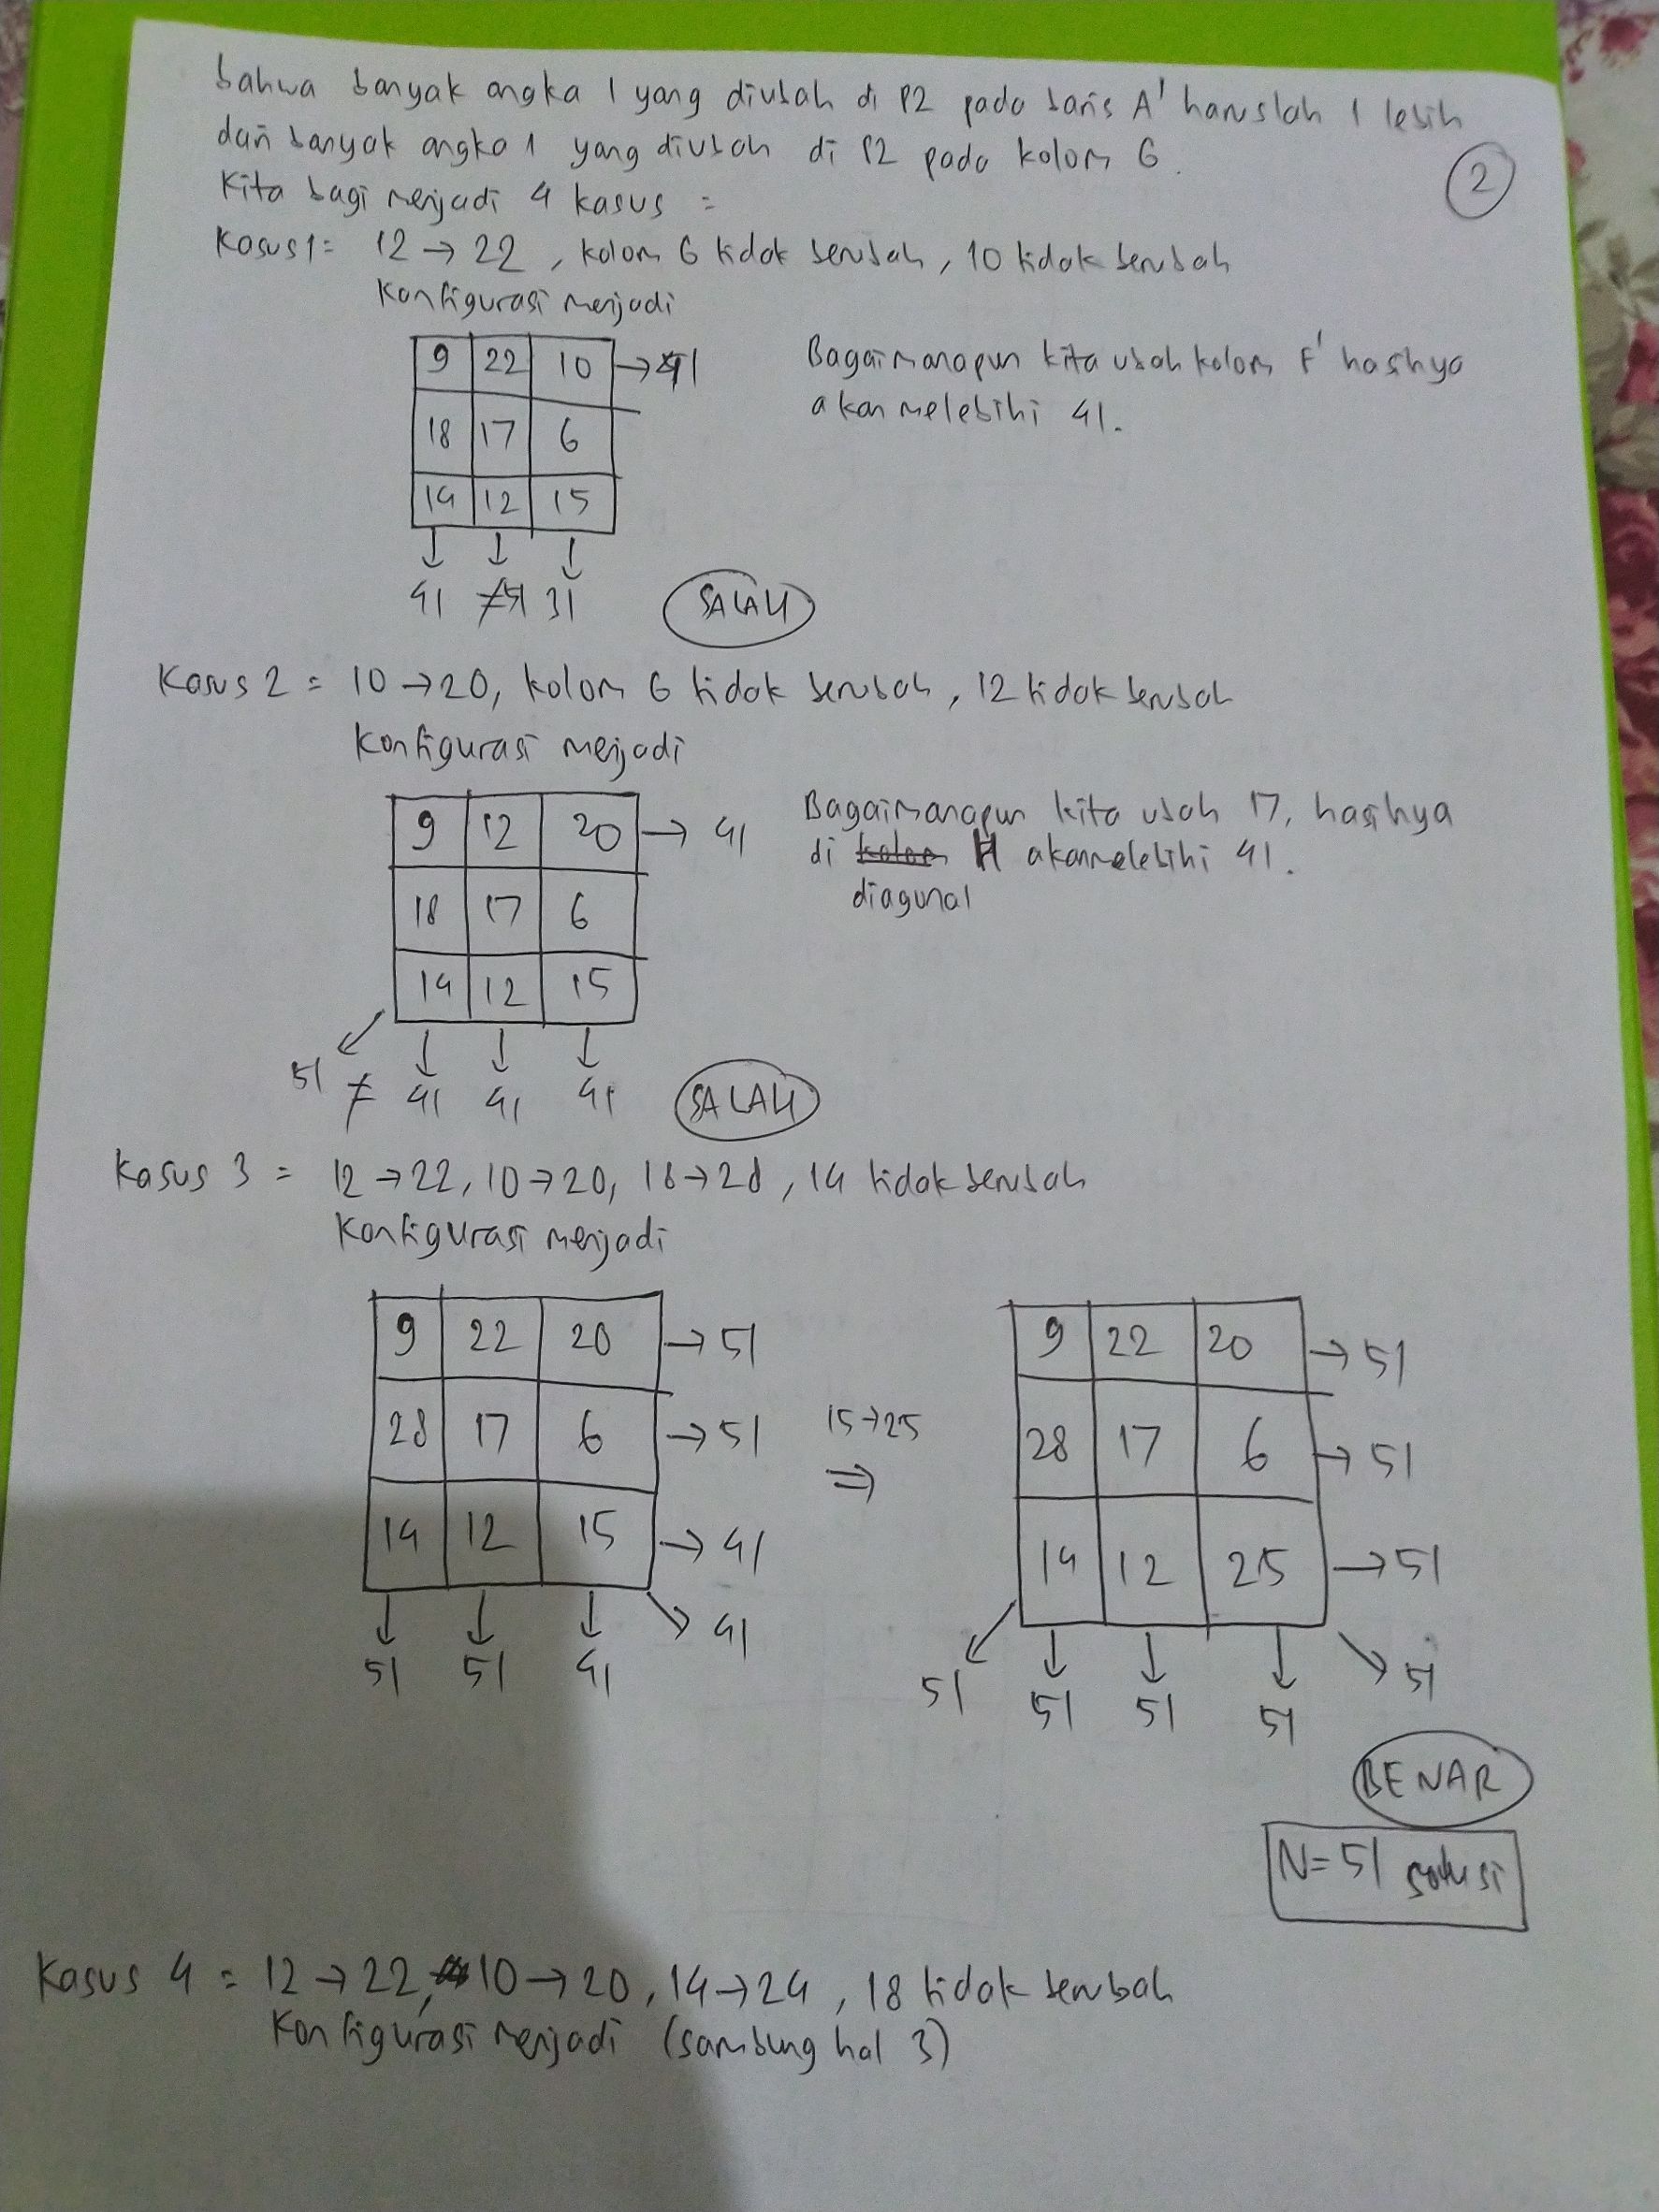 bahwa banyak angka 1 yang diubah di P2 pada baris A' haruslah 1 lebih
dari banyak angka 1 yang diubah di P2 pada kolom G.
2
Kita bagi menjadi 4 kasus =
Kasus 1 = 12 → 22, kolom G tidak berubah, 10 tidak berubah
Konfigurasi menjadi
9 22 10 → 41
18 17 6
14 12 15
41 ≠ 51 31
Bagaimanapun kita ubah kolom F' hasilnya
akan melebihi 41.
SALAH
Kasus 2 = 10 → 20, kolom G tidak berubah, 12 tidak berubah
Konfigurasi menjadi
9 12 20 → 41
18 17 6
14 12 15
51 ≠ 41 41 41
Bagaimanapun kita ubah 17, hasilnya
di H akan melebihi 41.
diagonal
SALAH
Kasus 3 = 12 → 22, 10 → 20, 18 → 28, 14 tidak berubah
Konfigurasi menjadi
9 22 20 → 51
28 17 6 → 51
14 12 15 → 41
51 51 41 41
15 → 25
⇒
9 22 20 → 51
28 17 6 → 51
14 12 25 → 51
51 51 51 51 51
BENAR
N = 51 solusi
Kasus 4 = 12 → 22, 10 → 20, 14 → 24, 18 tidak berubah
Konfigurasi menjadi (sambung hal 3)